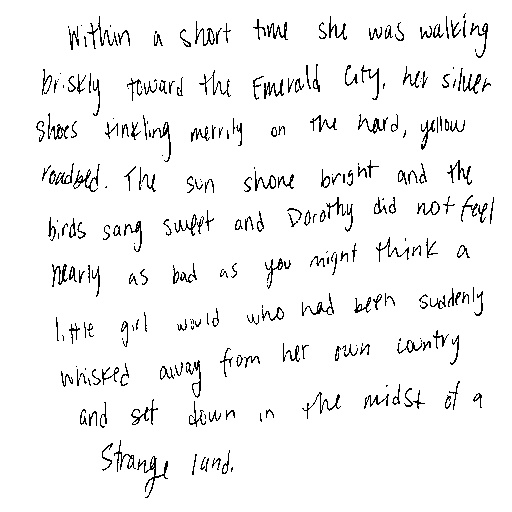 Within a short time she was walking
briskly toward the Emerald City, her silver
shoes tinkling merrily on the hard, yellow
roadbed. The sun shone bright and the
birds sang sweet and Dorothy did not feel
nearly as bad as you might think a
little girl would who had been suddenly
whisked away from her own country
and set down in the midst of a
strange land.